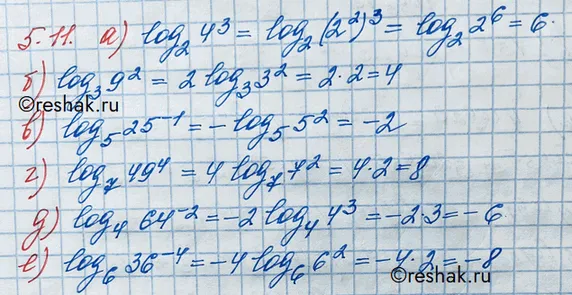 5.11. а) log₂ 4³ = log₂ (2²)³ = log₂ 2⁶ = 6.
б) log₃ 9² = 2 log₃ 3² = 2·2 = 4
©reshak.ru
в) log₅ 25⁻¹ = - log₅ 5² = -2
г) log₇ 49⁴ = 4 log₇ 7² = 4·2 = 8
д) log₄ 64⁻² = -2 log₄ 4³ = -2·3 = -6
е) log₆ 36⁻⁴ = -4 log₆ 6² = -4·2 = -8
©reshak.ru